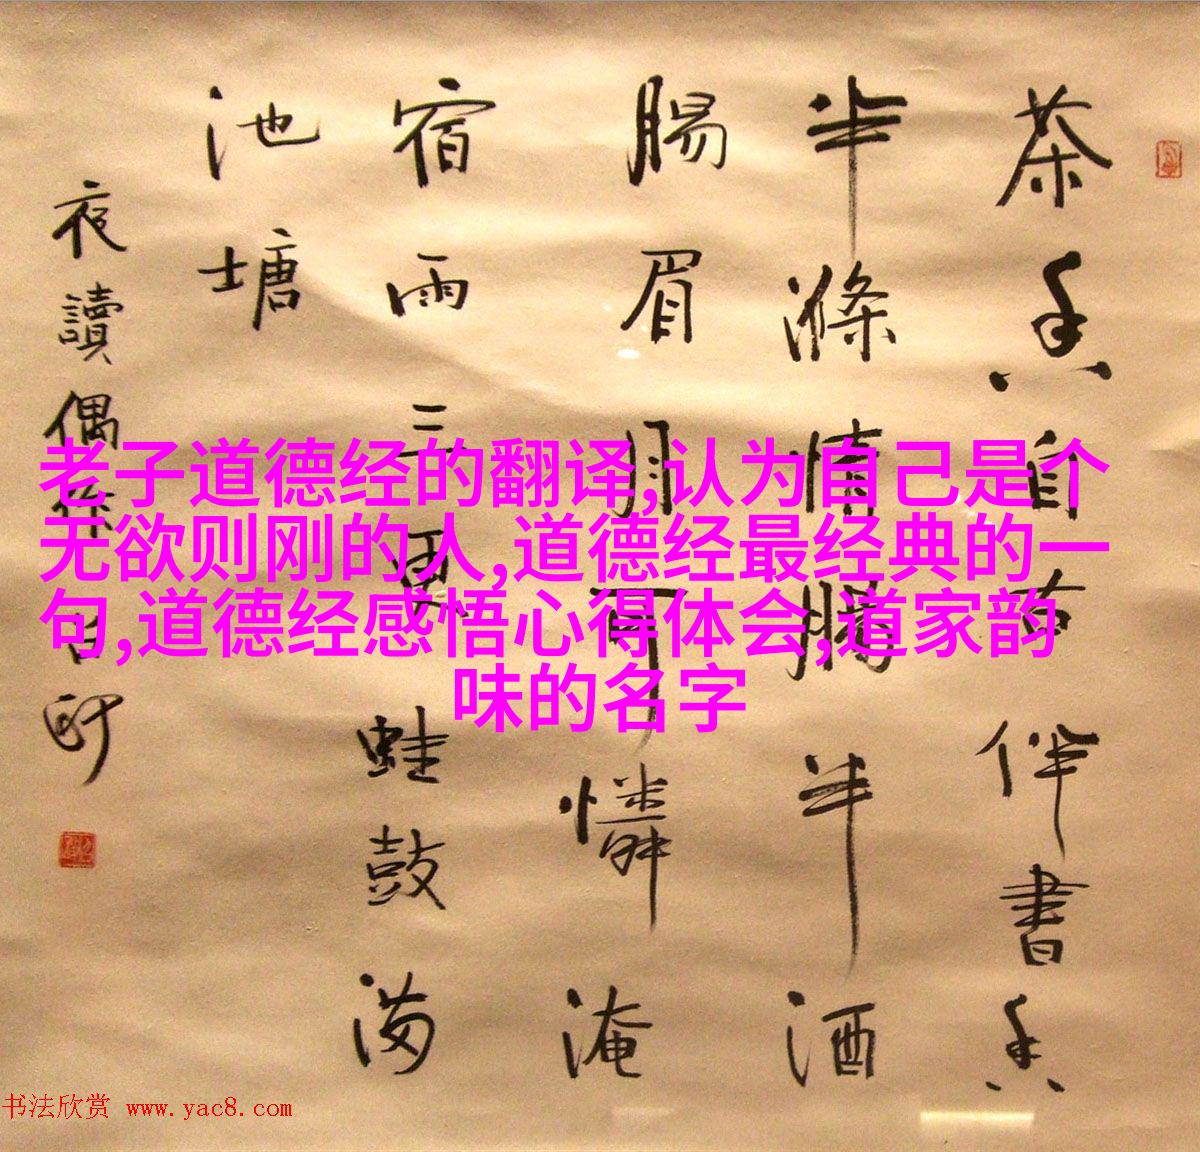 茶香自古伴書香
半滌情腸半酒
腸眉月可憐淹
宿雨三更蛙鼓滿
池塘
夜讀偶作
老子道德经的翻译,认为自己是个
无欲则刚的人,道德经最经典的一
句,道德经感悟心得体会,道家韵
味的名字
书法欣赏 www.yac8.com